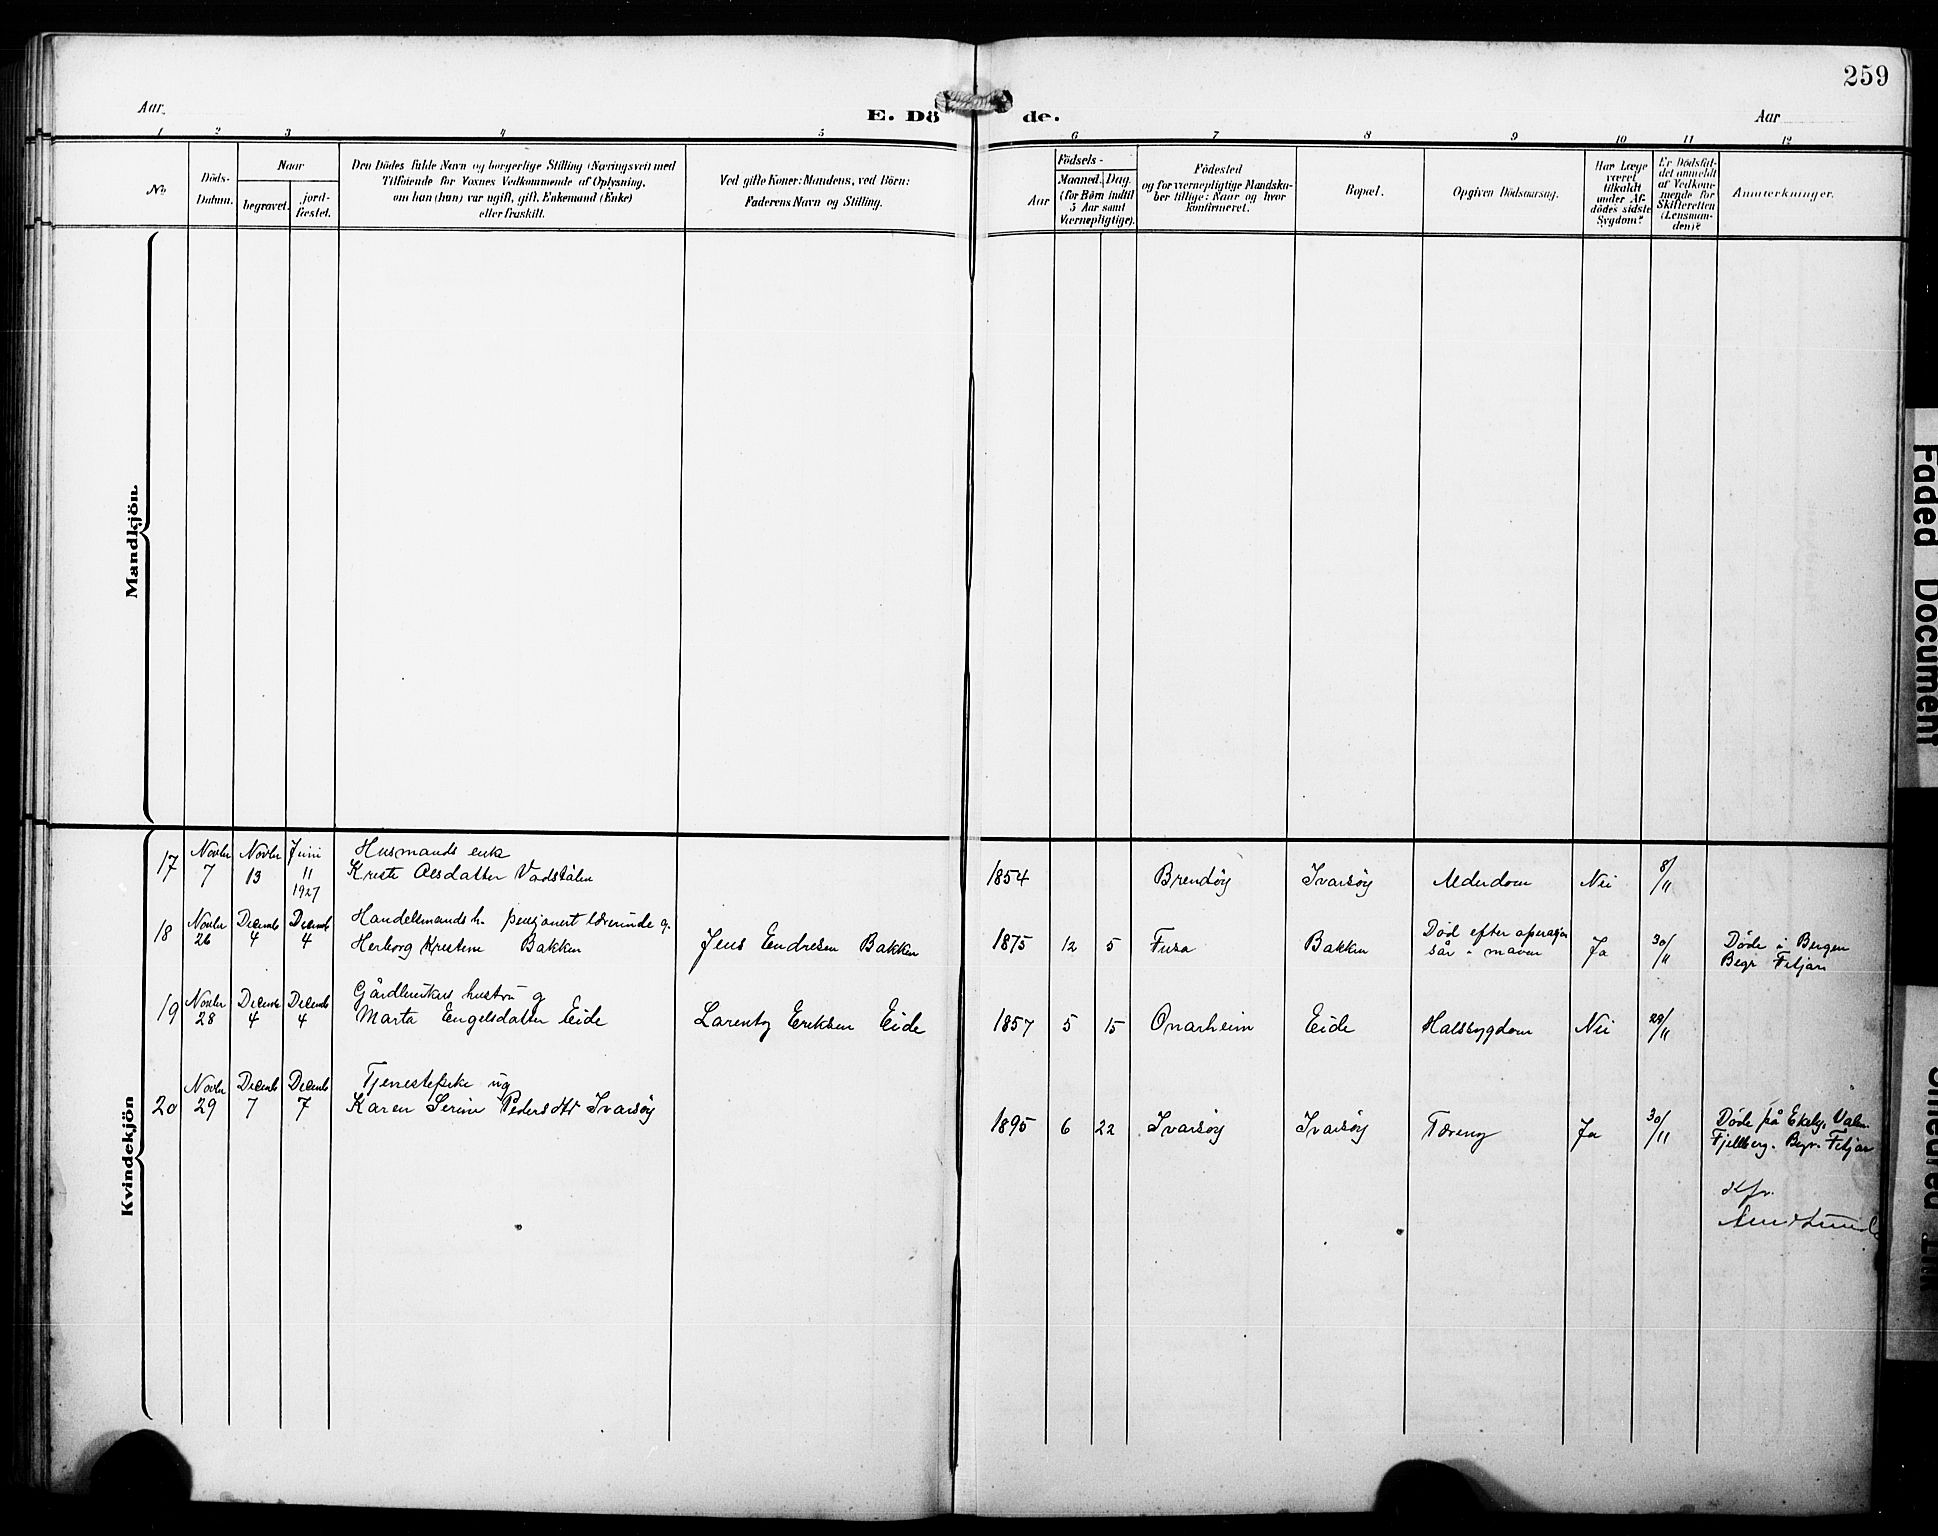 259
Aar
E. Döde.
Aar
1 2 3 4 5 6 7 8 9 10 11 12
No
Döds-
Datum.
Naar
begravet.
jord-
fæstet.
Den Dödes fulde Navn og borgerlige Stilling (Næringsvei) med
Tilföiende for Voxnes Vedkommende af Oplysning,
om han (hun) var ugift, gift, Enkemand (Enke)
eller fraskilt.
Ved gifte Koner: Mandens, ved Börn:
Faderens Navn og Stilling.
Födsels-
Aar
Maaned. Dag.
(for Börn indtil
5 Aar samt
Værnepligtige).
Födested
og for værnepligtige Mandska-
ber tillige: Naar og hvor
konfirmeret.
Bopæl.
Opgiven Dödsaarsag.
Har Læge
været
tilkaldt
under Af-
dödes sidste
Sygdom?
Er Dödsfal-
det anmeldt
af Vedkom-
mende for
Skifteretten
(Lensman-
den)?
Anmærkninger.
Mandkjön.
Kvindekjön
17 Novbr 7 Novbr 13 Juni 11 1927
Husmands enke
Kristi Olsdatter Vadstølen
1854 Brendøy Ivarsøy Alderdom Nei 8/11
18 Novbr 26 Decemb 4 Decemb 4
Handelsmands h. pensjonert lærerinde g.
Herborg Kristine Bakken
Jens Endresen Bakken
1875 12 5 Fusa Bakken
Død efter operasjon
sår i maven
Ja 30/11
Døde i Bergen
Begr Fitjar
19 Novbr 28 Decemb 4 Decemb 4
Gårdbrukers hustru g
Marta Engelsdatter Eide
Larentz Eriksen Eide
1857 5 15 Onarheim Eide Halssygdom Nei 29/11
20 Novbr 29 Decemb 7 Decemb 7
Tjenestepike ug
Karen Serine Pedersdtr Ivarsøy
1895 6 22 Ivarsøy Ivarsøy Tæring Ja 30/11
Døde på
Fjelberg. Begr. Fitjar
Kfr.
Faded Document